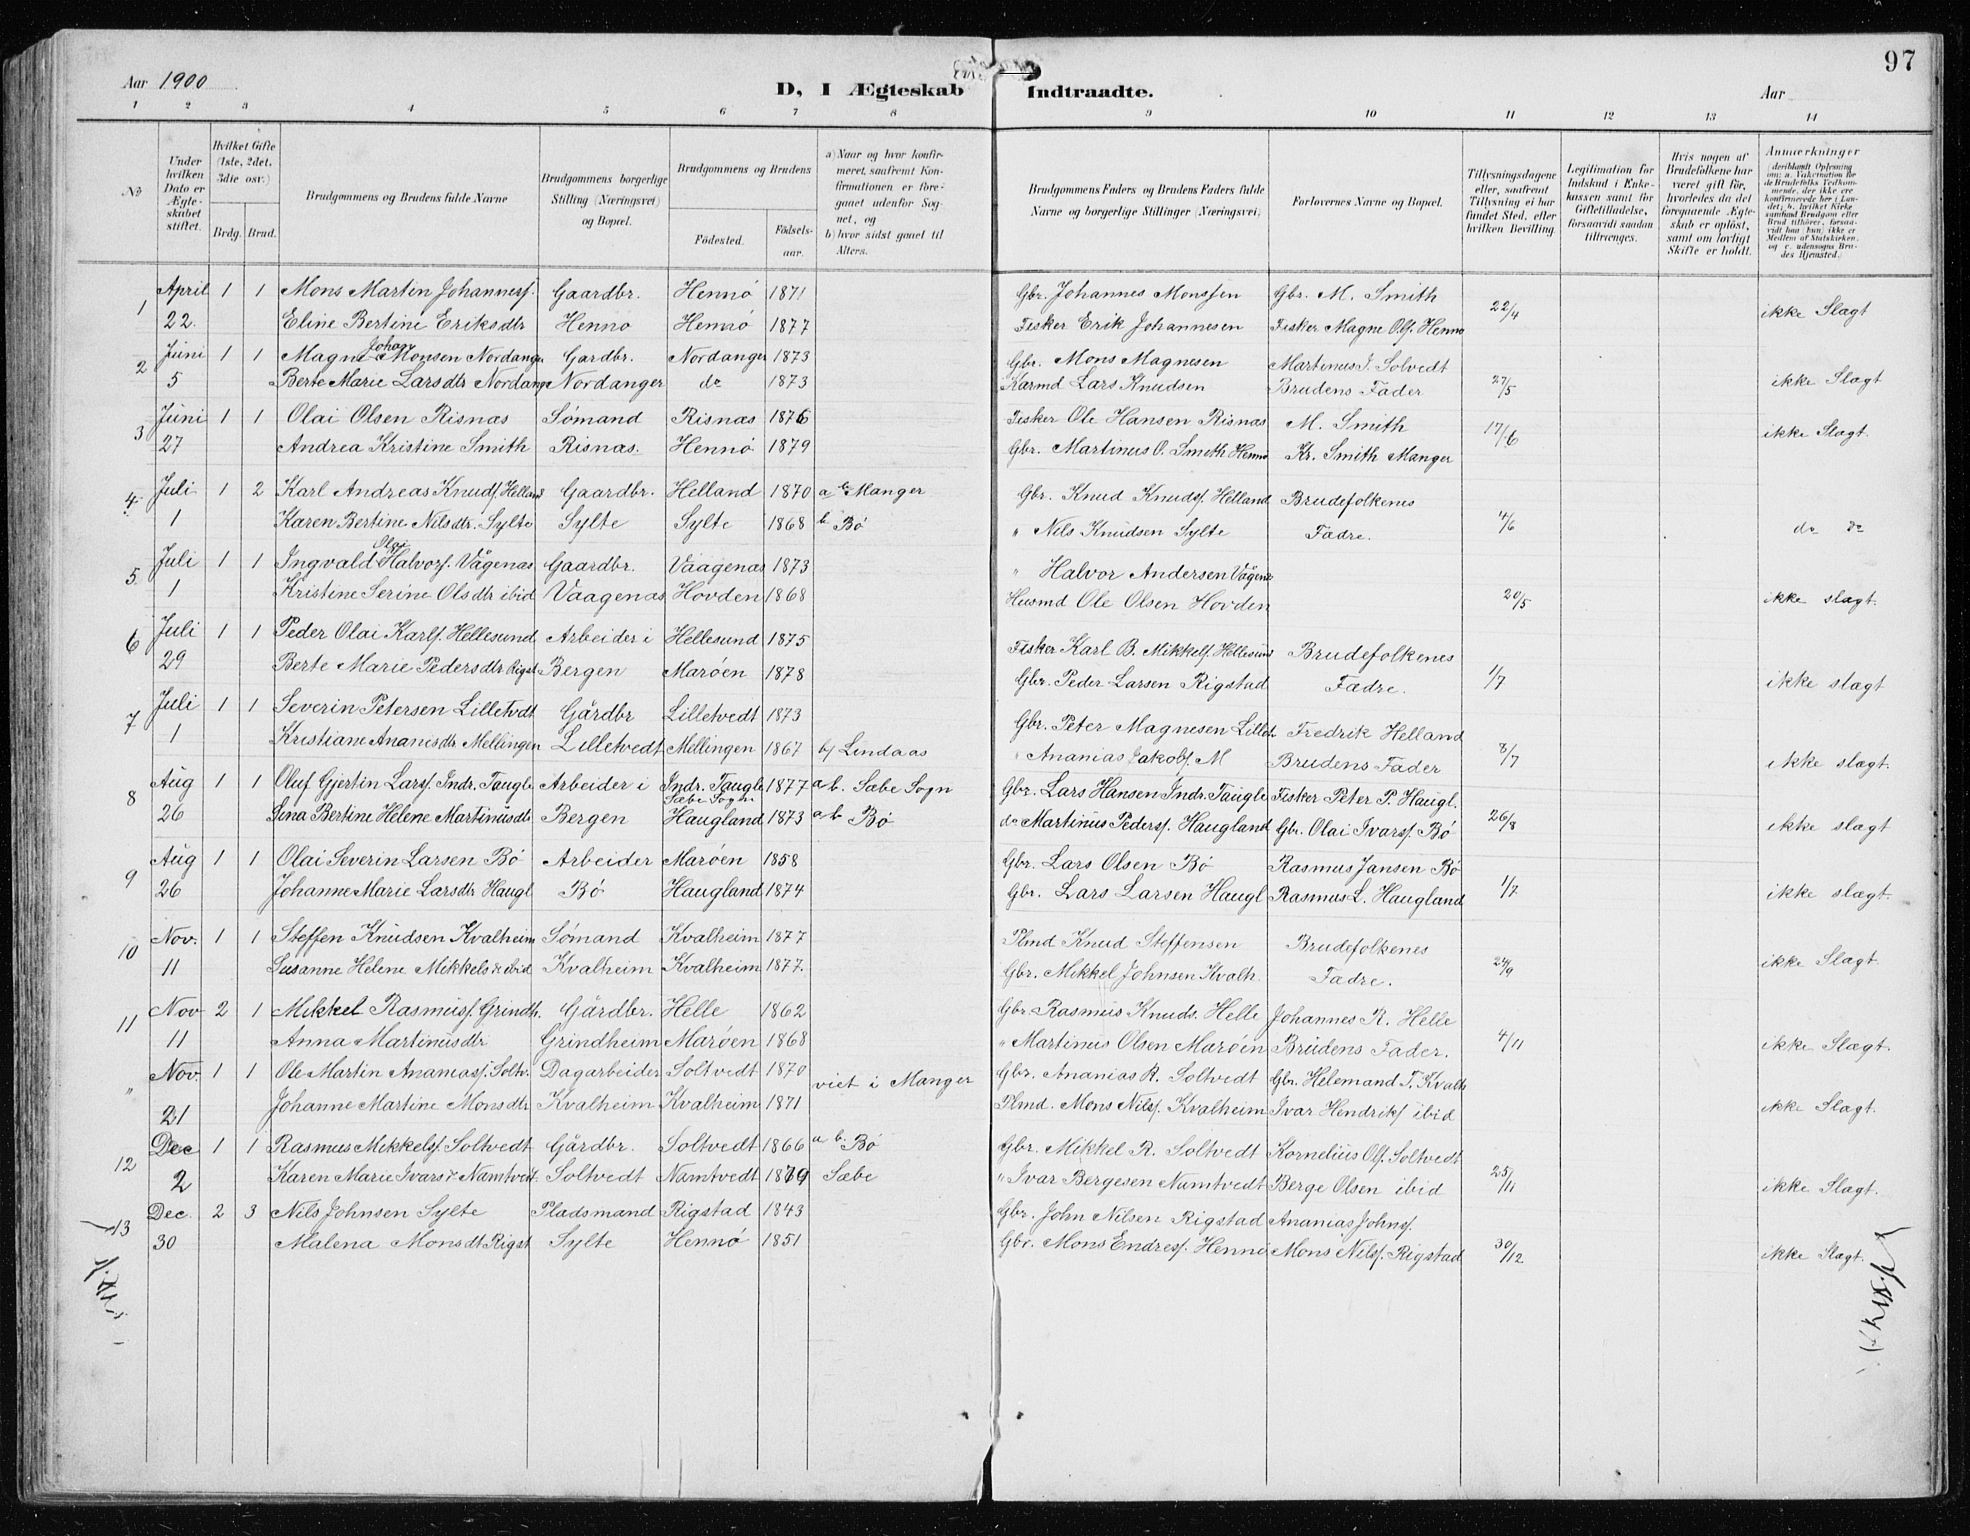 97
Aar 1900
D, I Ægteskab Indtraadte.
Aar
1 2 3 4 5 6 7 8 9 10 11 12 13 14
No
Under hvilken Dato er Ægteskabet stiftet.
Hvilket Gifte (1ste, 2det, 3die osv.)
Brdg. Brud.
Brudgommens og Brudens fulde Navne
Brudgommens borgerlige Stilling (Næringsvei) og Bopæl.
Brudgommens og Brudens
Fødested. Fødselsaar.
a) Naar og hvor konfirmeret, saafremt Konfirmationen er foregaaet udenfor Sognet, og
b) hvor sidst gaaet til Alters.
Brudgommens Faders og Brudens Faders fulde Navne og borgerlige Stillinger (Næringsvei)
Forlovernes Navne og Bopæl.
Tillysningsdagene eller, saafremt Tillysning ei har fundet Sted, efter hvilken Bevilling.
Legitimation for Indskud i Enkekassen samt for Giftetilladelse, forsaavidt saadan tiltrænges.
Hvis nogen af Brudefolkene har været gift før, hvorledes da det foregaaende Ægteskab er opløst, samt om lovligt Skifte er holdt.
Anmærkninger (deriblandt Oplysning om: a. Vakcination for de Brudefolks Vedkommende, der ikke ere konfirmerede her i Landet; b. hvilket Kirkesamfund Brudgom eller Brud tilhører, forsaavidt han (hun) ikke er Medlem af Statskirken, og c. udensogns Brudes Hjemsted.)
1 April 1 1 Mons Martin Johannesf. Gaardbr. Hennø 1871 Gbr. Johannes Monssen Gbr. M. Smith 22/4 ikke Slægt
22. Eline Bertine Eriksdtr Henno Hennø 1877 Fisker Erik Johannesen Fisker Magne Olsf. Henno
2 Juni 1 1 Magne Johan Monsen Nordanger Gardbr. Nordanger 1873 Gbr. Mons Magnesen Martinus J. Solvedt
5 Berte Marie Larsdtr Nordange Nordanger do 1873 Karmd Lars Knudsen Brudens Fader 27/5 ikke Slægt
3 Juni 1 1 Olai Olsen Risnæs Sømand Risnæs 1876 Fisker Ole Hansen Risnæs M. Smith 17/6 ikke Slægt.
27 Andrea Kristine Smith Risnæs. Hennø 1879 Gbr. Martinus O. Smith Hennø Kr. Smith Manger
4 Juli 1 2 Karl Andreas Knudsf. Helland Gaardbr. Helland 1870 a b Manger Gbr. Knud Knudsf. Helland Brudefolkenes
1 Karen Bertine Nilsdtr. Sylte Sylte Sylte 1868 b Bø " Nils Knudsen Sylte Fædre. 4/6 do do
5 Juli 1 1 Ingvald Olai Halvorsf. Vågenæs Gaardbr. Vaagenæs 1873 " Halvor Andersen Vågenæ
1 Kristine Serine Olsdtr ibid Vaagenæs Hovden 1868 Husmd Ole Olsen Hovden 20/5 ikke slægt.
6 Juli 1 1 Peder Olai Karlsf. Hellesund Arbeider i Hellesund 1875 Fisker Karl B. Mikkelsf. Hellesund Brudefolkenes
29 Berte Marie Pedersdtr Rigst Bergen Marøen 1878 Gbr. Peder Larsen Rigstad Fædre. 1/7 ikke slægt
7 Juli 1 1 Severin Petersen Lilletvdt Gårdbr Lilletvedt 1873 Gbr. Peter Magnesen Lillet. Fredrik Helland
1 Kristiane Ananisdtr Mellingen Lilletvedt Mellingen 1867 b) Lindaas " Ananias Jakobsf. M Brudens Fader 8/7 ikke slægt.
8 Aug 1 1 Oluf Gjertin Larsf. Indr. Taugle Arbeider i Indr. Taugle Sæbe Sogn 1877 a b. Sæbe Sogn Gbr. Lars Hansen Indr. Taugle Fisker Peter P. Haugl.
26 Sina Bertine Helene Martinusdtr Bergen Haugland 1873 a b Bø do Martinus Pedersf. Haugland Gbr. Olai Ivarsf. Bø 26/8 ikke slægt
9 Aug 1 1 Olai Severin Larsen Bø Arbeider Marøen 1858 Gbr. Lars Olsen Bø Rasmus Jansen Bø
26 Johanne Marie Larsdtr Haugl Bø Haugland 1874 Gbr. Lars Larsen Haugl Rasmus L. Haugland 1/7 ikke slægt.
10 Nov. 1 1 Steffen Knudsen Kvalheim Sømand Kvalheim 1877 Plmd Knud Steffensen Brudefolkenes
11 Susanne Helene Mikkelsdr ibid Kvalheim Kvalheim 1877. Gbr. Mikkel Johnsen Kvalh. Fædre. 24/9 ikke Slægt.
11 Nov 2 1 Mikkel Rasmusf. Grindh. Gårdbr. Helle 1862 Gbr. Rasmus Knuds. Helle Johannes R. Helle
11 Anna Martinusdtr Grindheim Marøen 1868 " Martinus Olsen Marøen Brudens Fader. 4/11 ikke Slægt.
" Nov. 1 1 Ole Martin Ananiasf. Soltv. Dagarbeider Soltvedt 1870 viet i Manger Gbr. Ananias R. Soltvedt Gbr. Helemand T. Kvalh
21 Johanne Martine Monsdtr Kvalheim Kvalheim 1871 Plmd. Mons Nilsf. Kvalheim Ivar Hendriksf ibid ikke Slægt.
12 Dec 1 1 Rasmus Mikkelsf Soltvedt Gårdbr. Soltvedt 1866 a b. Bø Gbr. Mikkel R. Soltvedt Kornelius Olsf. Soltvedt
2 Karen Marie Ivarsdr Namtvedt. Soltvedt Namtvedt 1879 Sæbe " Ivar Bergesen Namtvedt Berge Olsen ibid 25/11 ikke Slægt.
13 Dec. 2 3 Nils Johnsen Sylte Pladsmand Rigstad 1843 Gbr. John Nilsen Rigstad Ananias Johnsf.
30 Malena Monsdt Rigst Sylte Hennø 1851 Gbr. Mons Endresf. Henno Mons Nilsf. Rigstad 30/12 ikke Slægt.